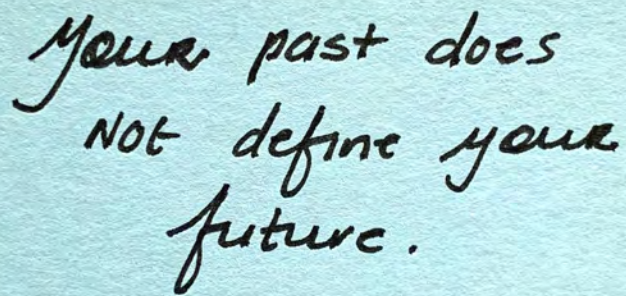 Your past does
Not define your
future.